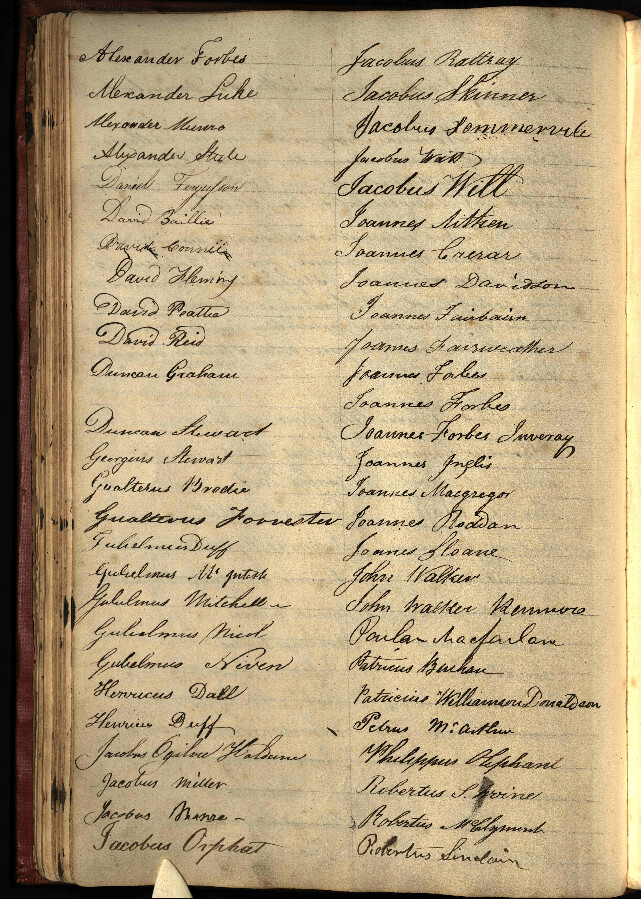 Alexander Forbes
Alexander Luke
Alexander Munro
Alexander Steele
Daniel Fergusson
David Baillie
David
David Fleming
David Peattie
David Reid
Duncan Graham
Duncan Stewart
Georgius Stewart
Gualterus Brodie
Gualterus Forrester
Gulielmus Duff
Gulielmus
Gulielmus Mitchell
Gulielmus Nicol
Gulielmus Niven
Henricus Dall
Henricus Duff
Jacobus Ogilvie Haldane
Jacobus Miller
Jacobus
Jacobus Orphat
Jacobus Rattray
Jacobus Skinner
Jacobus Sommerville
Jacobus Watt
Jacobus Will
Joannes Aitken
Joannes Crerar
Joannes Davidson
Joannes Fairbairn
Joannes Fairweather
Joannes Forbes
Joannes Forbes
Joannes Forbes Inveray
Joannes Inglis
Joannes Macgregor
Joannes Roddan
Joanes Sloane
John Walker
John Walker
Parlan Macfarlan
Patricius Buchan
Patricius Williamson Donaldson
Petrus McArthur
Philippus Oliphant
Robertus Irvine
Robertus McClymont
Robertus Sinclair